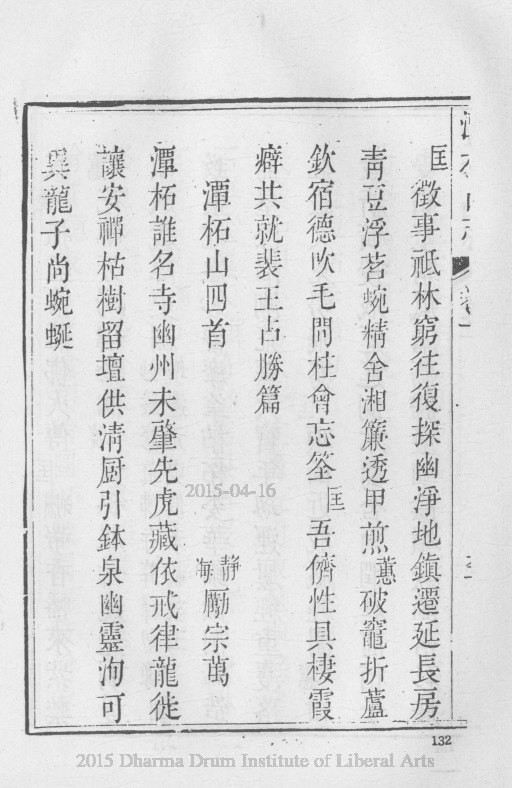 匡徵事祗林窮往復探幽淨地鎮遷延長房
靑豆浮茗蜿精舍湘簾透甲煎蕙破竈折蘆
欽宿德吹毛問柱會忘筌匡吾儕性具棲霞
癖共就裴王占勝篇
潭柘山四首
静海勵宗萬
潭柘誰名寺幽州未肇先虎藏依戒律龍徙
讓安禪枯樹留壇供淸厨引鉢泉幽靈洵可
異龍子尚蜿蜒
132
2015-04-16
2015 Dharma Drum Institute of Liberal Arts